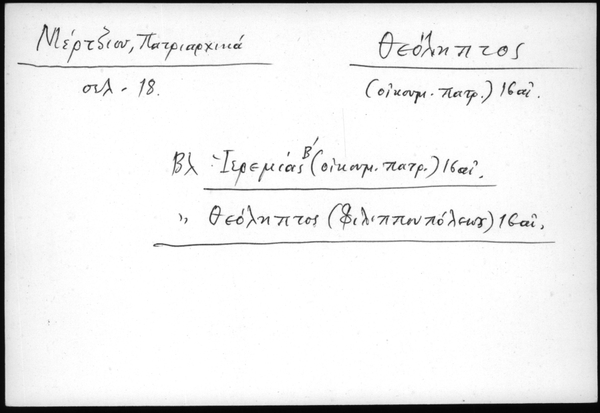 Μέρτζιου, Πατριαρχικά
σελ. 18.
Θεόληπτος
(οἰκουμ. πατρ.) 16 αἰ.
Βλ Ἰερεμίας Β΄ (οἰκουμ. πατρ.) 16 αἰ.
〃 Θεόληπτος (Φιλιππουπόλεως) 16 αἰ.